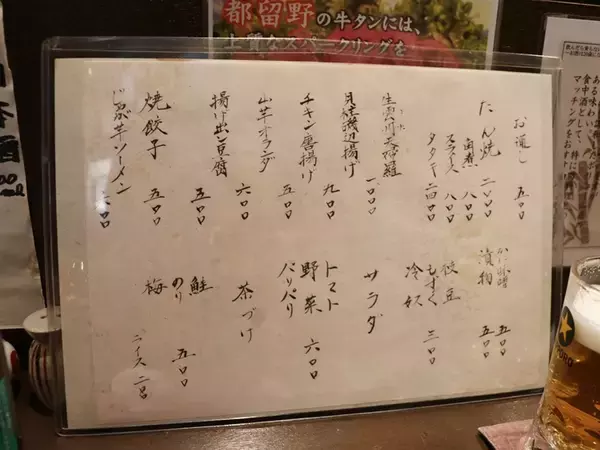 都留野の牛タンには、
上質なスパークリングを
お通し 五〇〇
たん焼 二〇〇〇
角煮 八〇〇
スライス 八〇〇
タタキ 二四〇〇
生雲丹天婦羅 一〇〇〇
貝柱磯辺揚げ 九〇〇
チキン唐揚げ 五〇〇
山芋オクラダ 六〇〇
揚げ出し豆腐 五〇〇
焼餃子 五〇〇
じゃが芋ソーメン 六〇〇
五〇〇
漬物 五〇〇
枝豆
もずく 三〇〇
冷奴
サラダ
トマト
野菜 六〇〇
パリパリ
茶づけ
鮭
のり 五〇〇
梅
ライス 二〇〇
ある
味わい
食中酒として、
マッチング